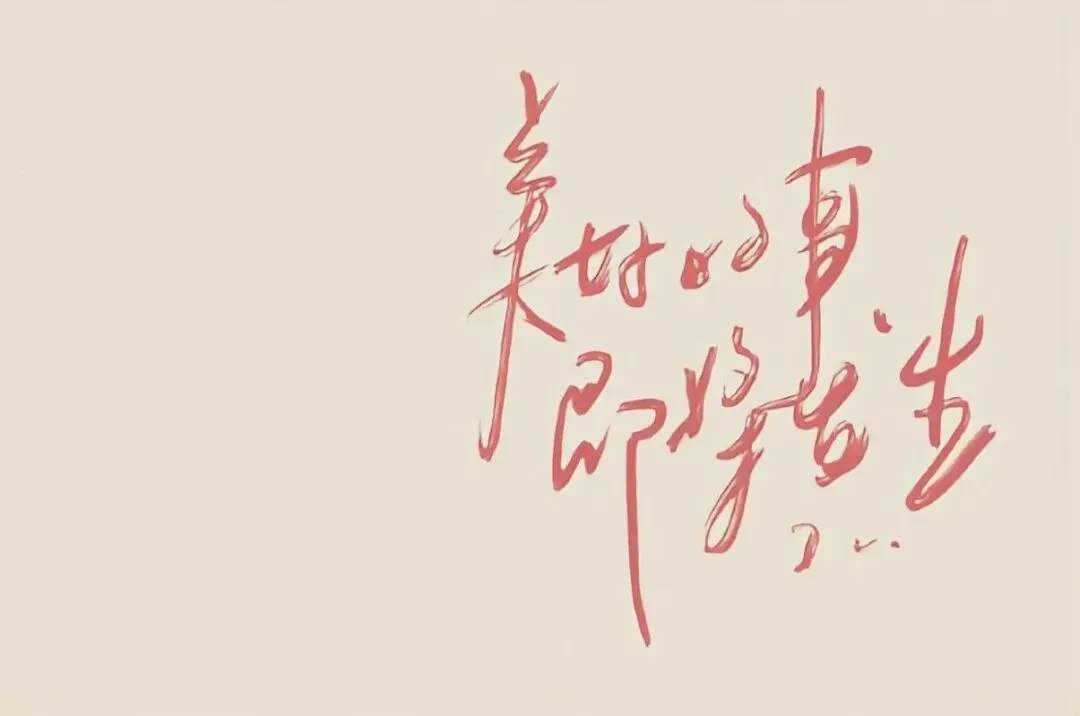 美好的事
即将发生
了...